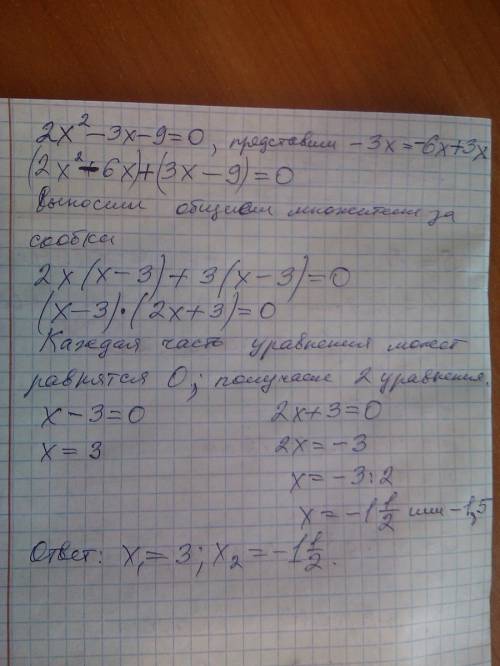 2x² - 3x - 9 = 0, представим -3x = -6x + 3x
(2x² - 6x) + (3x - 9) = 0
Выносим общий множитель за
скобки
2x(x - 3) + 3(x - 3) = 0
(x - 3) · (2x + 3) = 0
Каждая часть уравнения может
равнятся 0; получаем 2 уравнения.
x - 3 = 0 2x + 3 = 0
x = 3 2x = -3
x = -3 : 2
x = -1 1/2 или -1,5
Ответ: x₁ = 3; x₂ = -1 1/2.